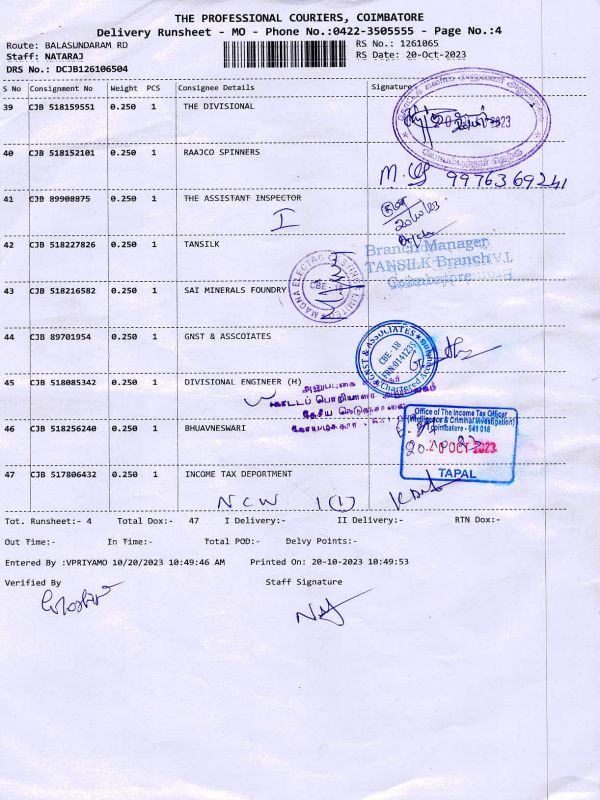 THE PROFESSIONAL COURIERS, COIMBATORE
Delivery Runsheet - MO - Phone No.:0422-3505555 - Page No.:4
Route: BALASUNDARAM RD
RS No.: 1261065
Staff: NATARAJ
RS Date: 20-Oct-2023
DRS No.: DCJB126106504
S No Consignment No Weight PCS Consignee Details Signature
39 CJB 518159551 0.250 1 THE DIVISIONAL
2023
40 CJB 518152101 0.250 1 RAAJCO SPINNERS
9976369241
41 CJB 89908875 0.250 1 THE ASSISTANT INSPECTOR
I
20/10/23
42 CJB 518227826 0.250 1 TANSILK
Branch Manager
TANSILK Branch
Coimbatore
MAGNA ELECTRO LIMITED
CBE - 18
43 CJB 518216582 0.250 1 SAI MINERALS FOUNDRY
44 CJB 89701954 0.250 1 GNST & ASSCOIATES
GNST & ASSOCIATES
CBE - 18
FRN-014123S
Chartered
45 CJB 518085342 0.250 1 DIVISIONAL ENGINEER (H)
தேசிய
46 CJB 518256240 0.250 1 BHUAVNESWARI
Office of The Income Tax Officer
(Intelligence & Criminal Investigation)
Coimbatore - 641 018
20 OCT 2023
TAPAL
47 CJB 517806432 0.250 1 INCOME TAX DEPORTMENT
NCW 1(1)
Tot. Runsheet:- 4 Total Dox:- 47 I Delivery:- II Delivery:- RTN Dox:-
Out Time:- In Time:- Total POD:- Delvy Points:-
Entered By :VPRIYAMO 10/20/2023 10:49:46 AM Printed On: 20-10-2023 10:49:53
Verified By Staff Signature